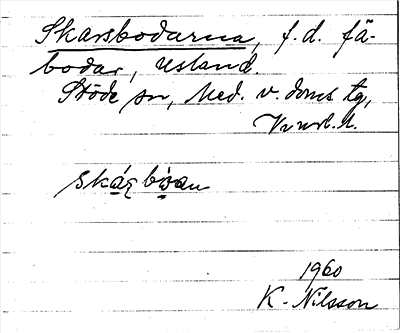 Skarsbodarna, f.d. fä-
bodar, utsland.
Stöde sn, Med. v. doms tg,
Vnrl. l.
skáʂ bo̱an
1960
K. Nilsson